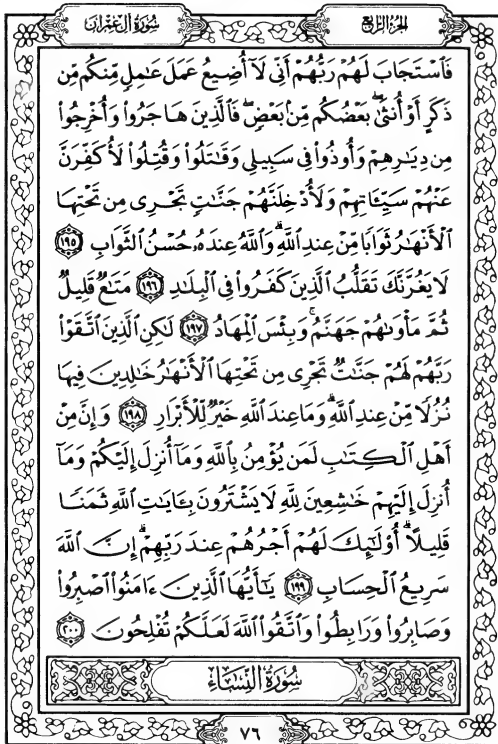 سُورَةُ آلِ عِمْرَان الجُزْءُ الرَّابِعُ
فَٱسْتَجَابَ لَهُمْ رَبُّهُمْ أَنِّى لَآ أُضِيعُ عَمَلَ عَٰمِلٍ مِّنكُم مِّن
ذَكَرٍ أَوْ أُنثَىٰۖ بَعْضُكُم مِّنۢ بَعْضٍۖ فَٱلَّذِينَ هَاجَرُوا۟ وَأُخْرِجُوا۟
مِن دِيَٰرِهِمْ وَأُوذُوا۟ فِى سَبِيلِى وَقَٰتَلُوا۟ وَقُتِلُوا۟ لَأُكَفِّرَنَّ
عَنْهُمْ سَيِّـَٔاتِهِمْ وَلَأُدْخِلَنَّهُمْ جَنَّٰتٍ تَجْرِى مِن تَحْتِهَا
ٱلْأَنْهَٰرُ ثَوَابًا مِّنْ عِندِ ٱللَّهِۗ وَٱللَّهُ عِندَهُۥ حُسْنُ ٱلثَّوَابِ ١٩٥
لَا يَغُرَّنَّكَ تَقَلُّبُ ٱلَّذِينَ كَفَرُوا۟ فِى ٱلْبِلَٰدِ ١٩٦ مَتَٰعٌ قَلِيلٌ
ثُمَّ مَأْوَىٰهُمْ جَهَنَّمُۚ وَبِئْسَ ٱلْمِهَادُ ١٩٧ لَٰكِنِ ٱلَّذِينَ ٱتَّقَوْا۟
رَبَّهُمْ لَهُمْ جَنَّٰتٌ تَجْرِى مِن تَحْتِهَا ٱلْأَنْهَٰرُ خَٰلِدِينَ فِيهَا
نُزُلًا مِّنْ عِندِ ٱللَّهِۗ وَمَا عِندَ ٱللَّهِ خَيْرٌ لِّلْأَبْرَارِ ١٩٨ وَإِنَّ مِنْ
أَهْلِ ٱلْكِتَٰبِ لَمَن يُؤْمِنُ بِٱللَّهِ وَمَآ أُنزِلَ إِلَيْكُمْ وَمَآ
أُنزِلَ إِلَيْهِمْ خَٰشِعِينَ لِلَّهِ لَا يَشْتَرُونَ بِـَٔايَٰتِ ٱللَّهِ ثَمَنًا
قَلِيلًاۗ أُو۟لَٰٓئِكَ لَهُمْ أَجْرُهُمْ عِندَ رَبِّهِمْۗ إِنَّ ٱللَّهَ
سَرِيعُ ٱلْحِسَابِ ١٩٩ يَٰٓأَيُّهَا ٱلَّذِينَ ءَامَنُوا۟ ٱصْبِرُوا۟
وَصَابِرُوا۟ وَرَابِطُوا۟ وَٱتَّقُوا۟ ٱللَّهَ لَعَلَّكُمْ تُفْلِحُونَ ٢٠٠
سُورَةُ النِّسَاءِ
٧٦